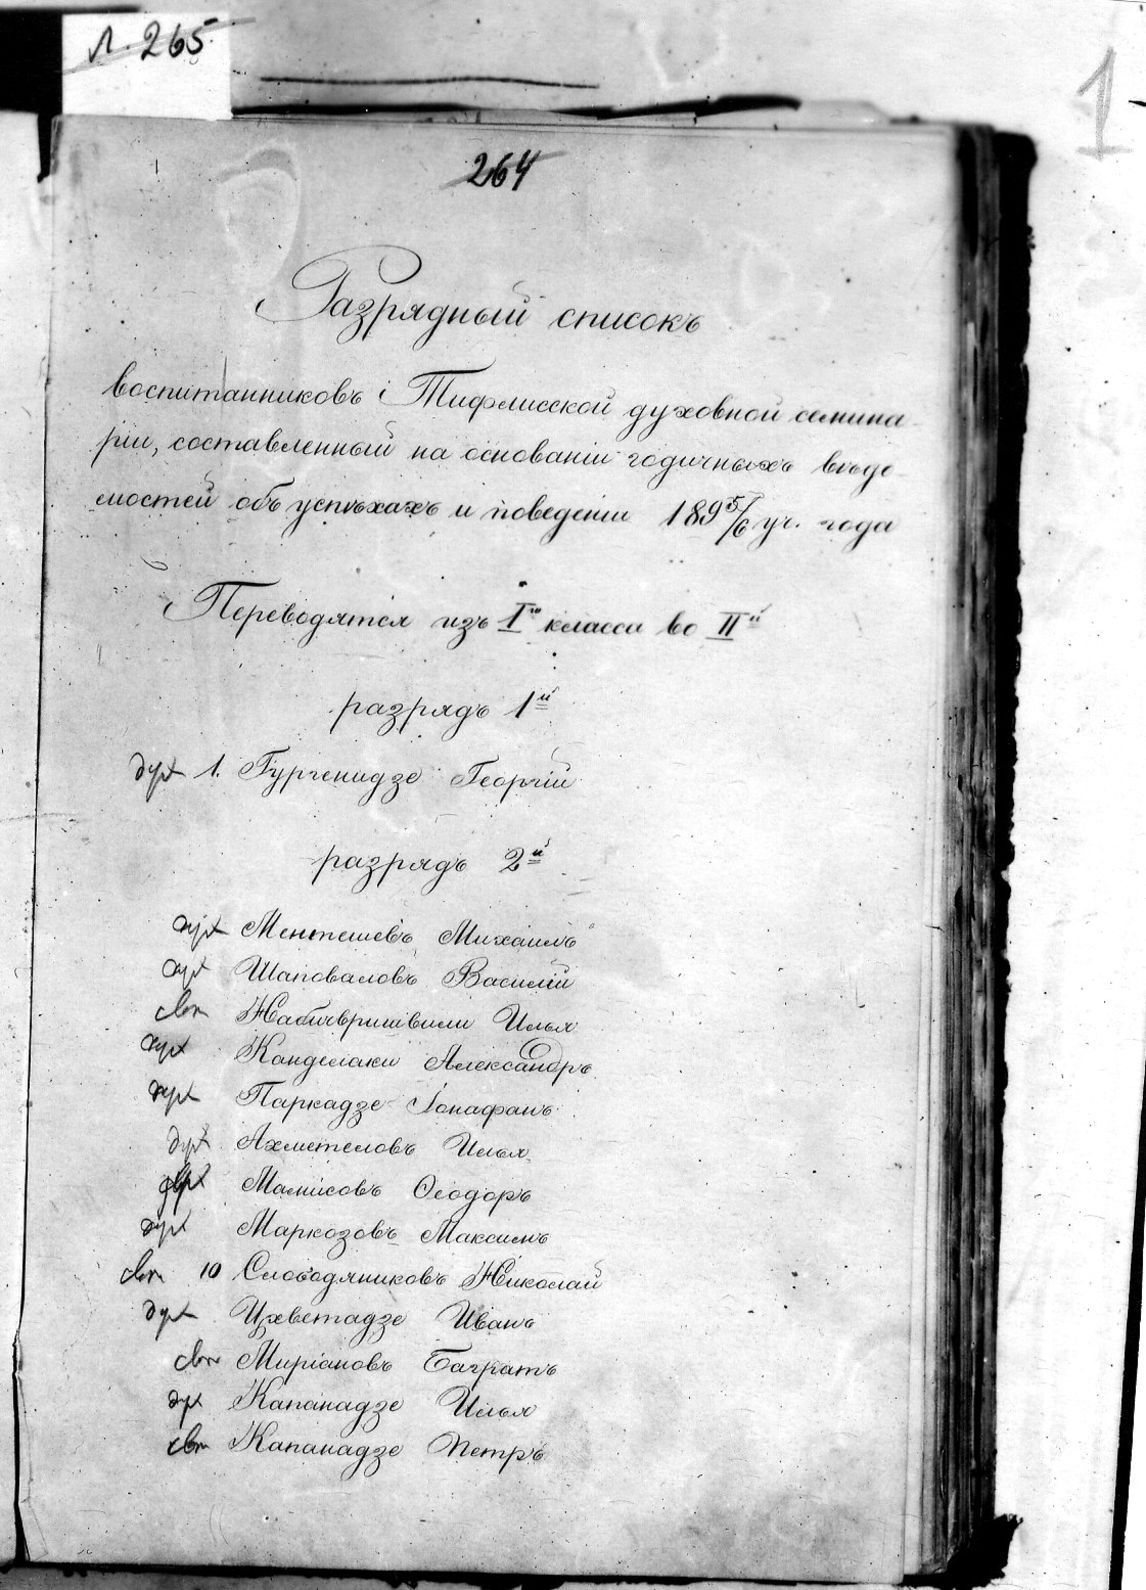 Л. 265
1
264
Разрядный списокъ
воспитанниковъ Тифлисской духовной семина-
ріи, составленный на основаніи годичныхъ вѣдо-
мостей объ успѣхахъ и поведеніи 1895/6 уч. года
Переводятся изъ Iго класса во IIй
разрядъ 1й
дух 1. Гургенидзе Георгій
разрядъ 2й
дух Ментешевъ Михаилъ
дух Шаповаловъ Василій
свт Набичвришвили Илья
дух Канделаки Александръ
дух Паркадзе Іонафанъ
дух Ахметеловъ Илья
Мамисовъ Ѳеодоръ
дух Маркозовъ Максимъ
свт 10 Слободяниковъ Николай
дух Цхветадзе Иванъ
свт Миріановъ Багратъ
дух Капанадзе Илья
свт Капанадзе Петръ